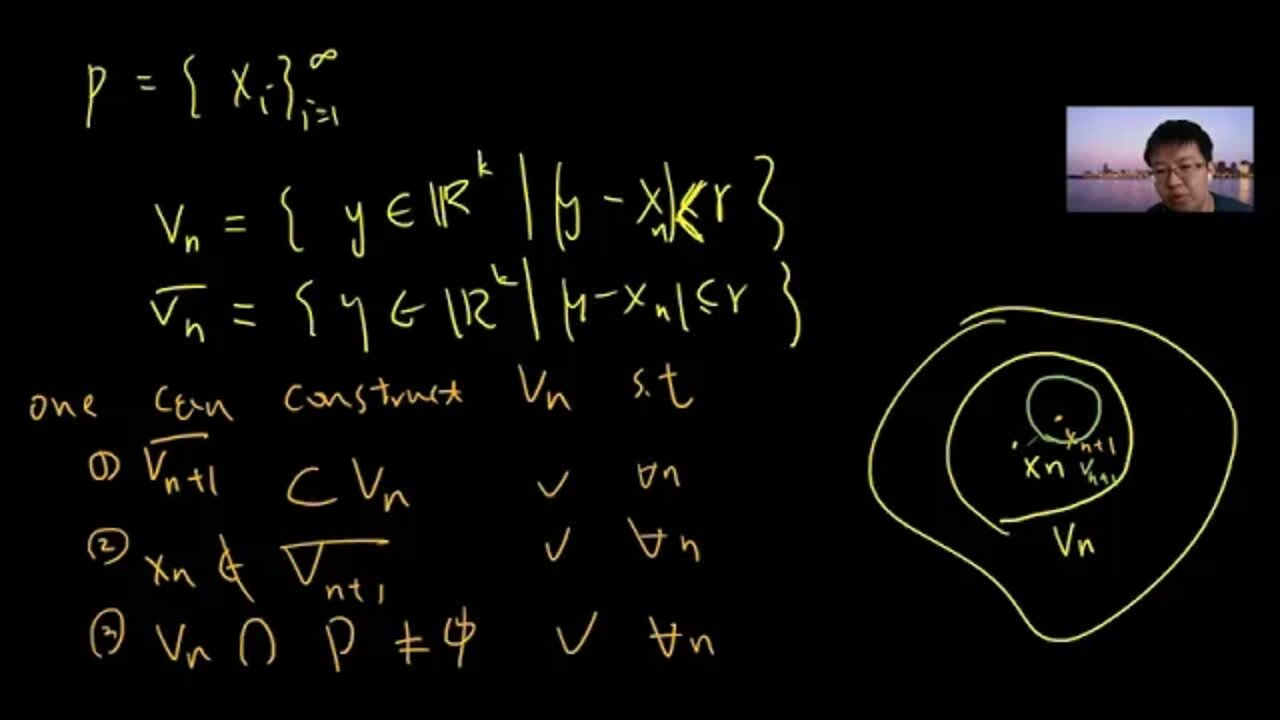 P = { x_i }_{i=1}^∞
V_n = { y ∈ ℝ^k | |y - x_n| < r }
\overline{V_n} = { y ∈ ℝ^k | |y - x_n| ≤ r }
one can construct V_n s.t
① \overline{V_{n+1}} ⊂ V_n ✓ ∀n
② x_n ∉ \overline{V_{n+1}} ✓ ∀n
③ V_n ∩ P ≠ ϕ ✓ ∀n
x_{n+1}
x_n V_{n+1}
V_n